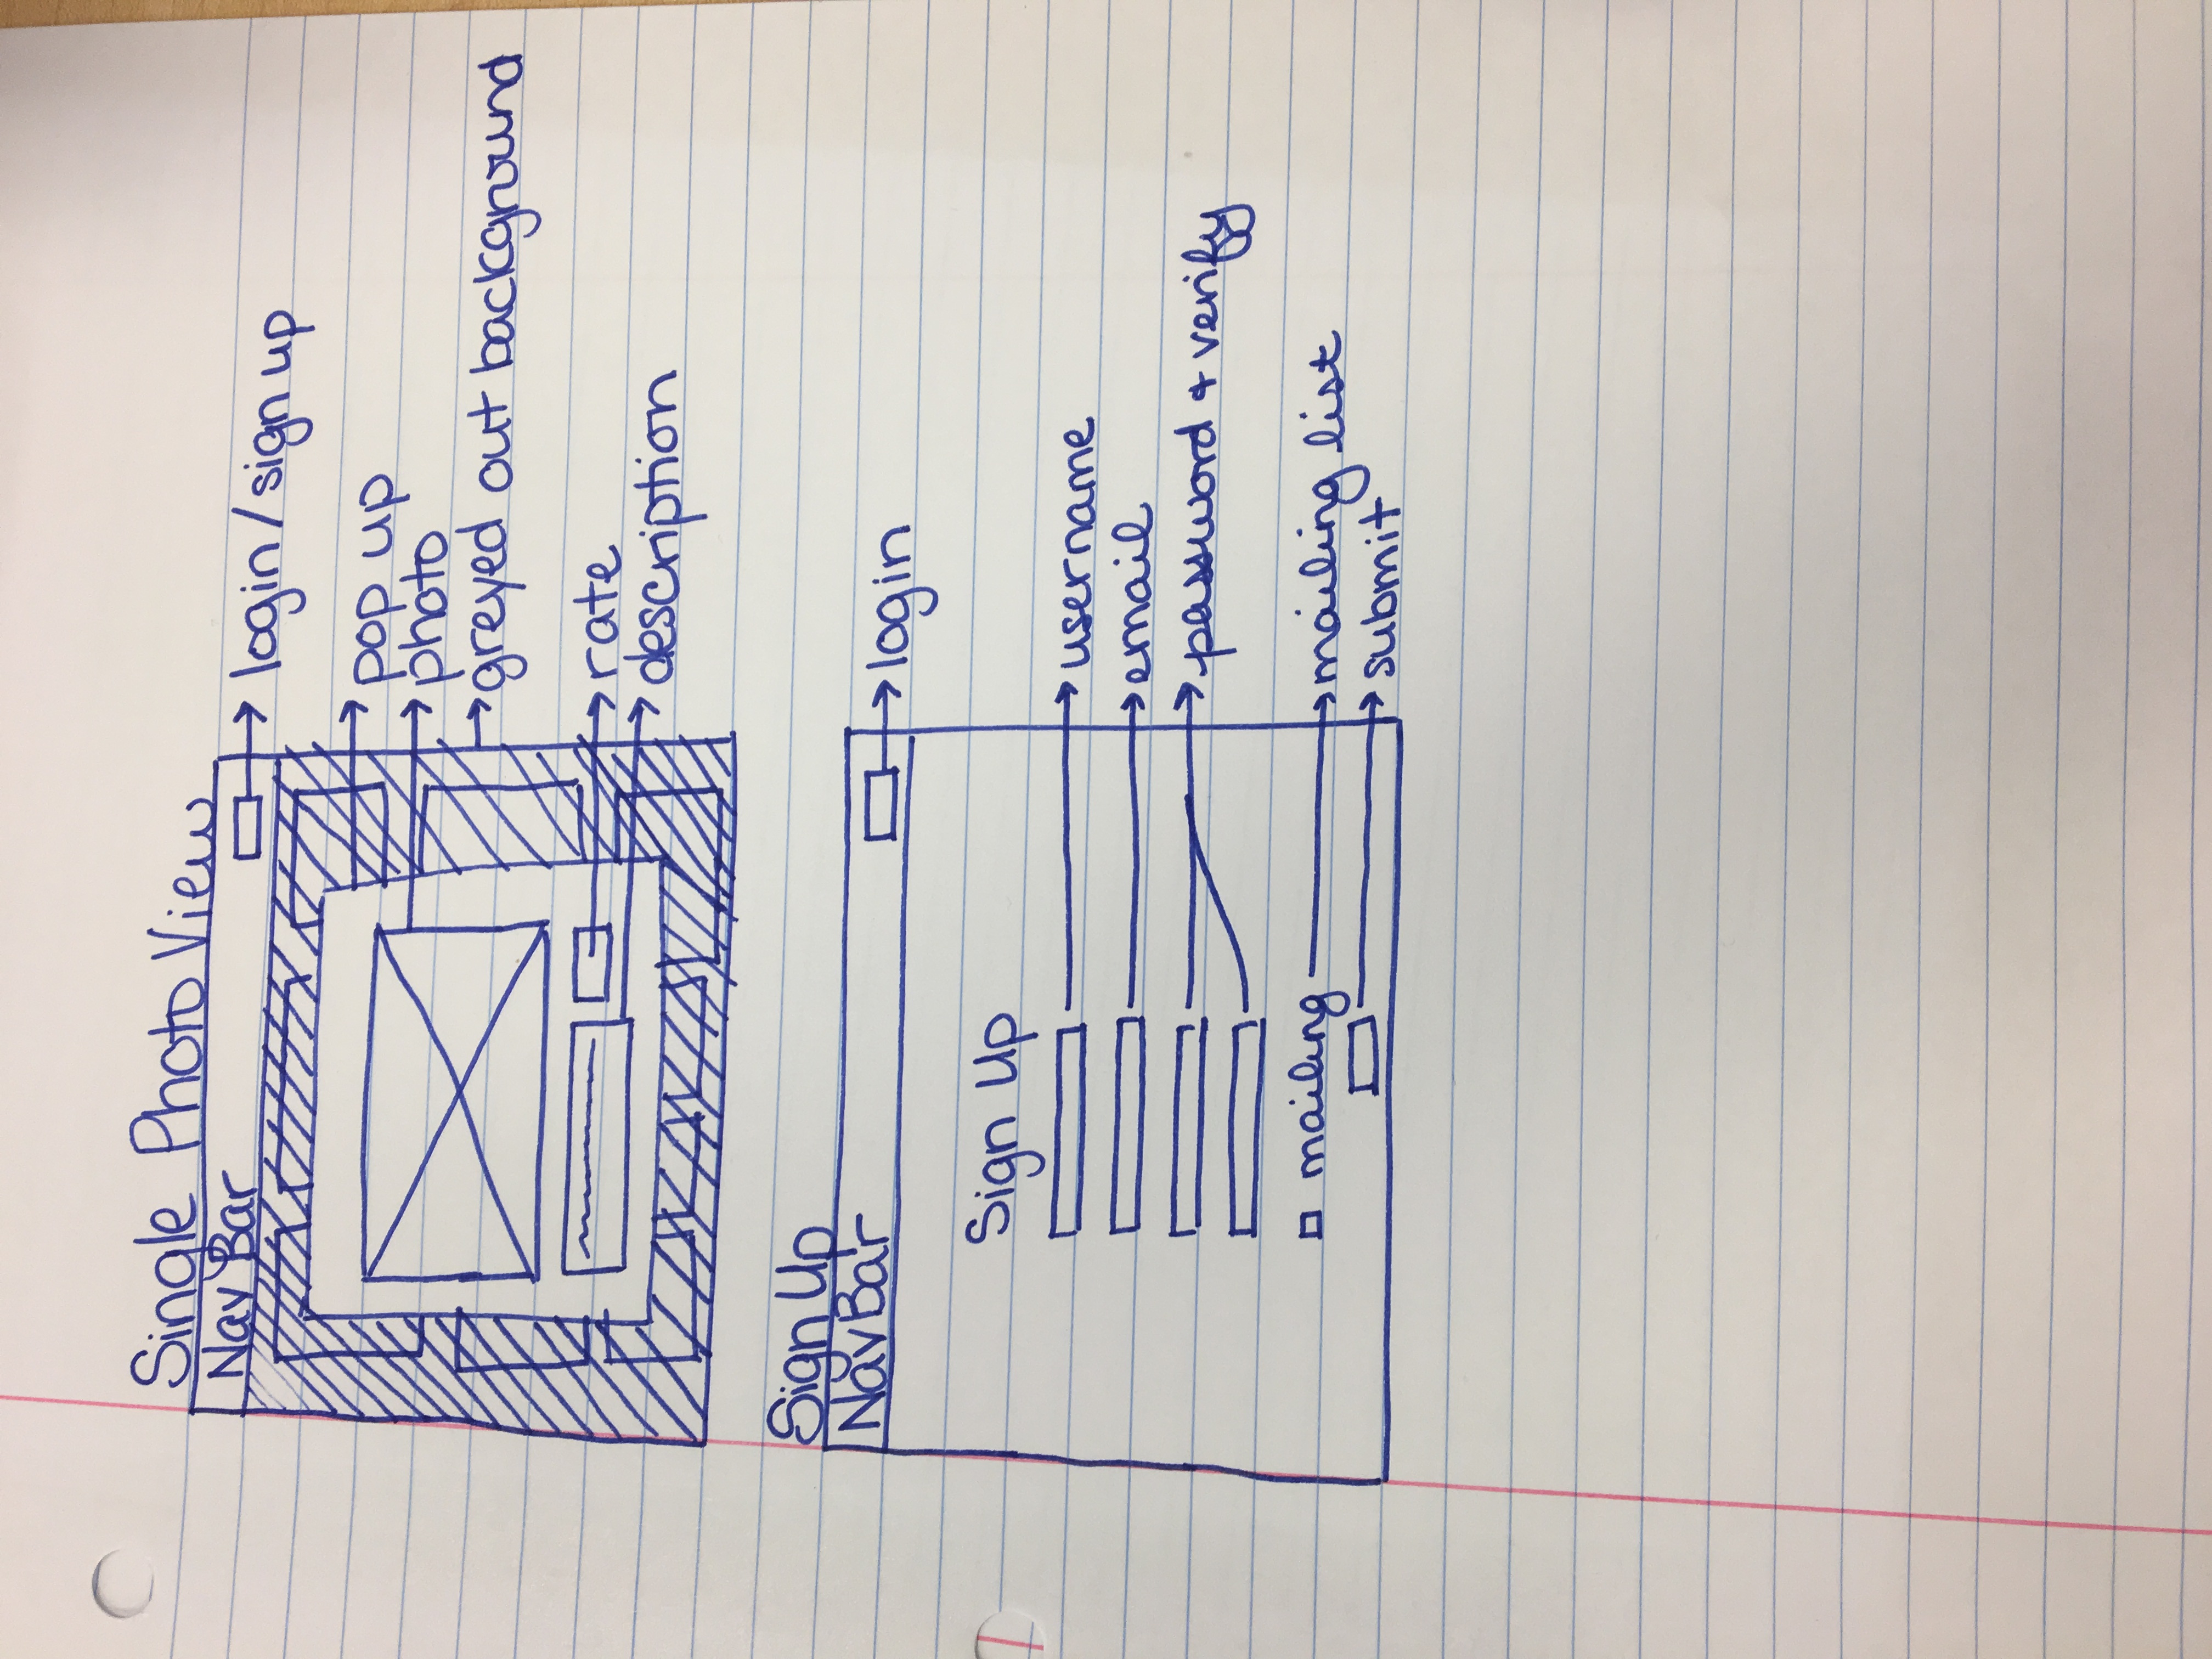 Single Photo View
Nav Bar
login/sign up
pop up
photo
greyed out background
rate
description
Sign Up
NavBar
login
Sign Up
username
email
password + verify
mailing
mailing list
submit